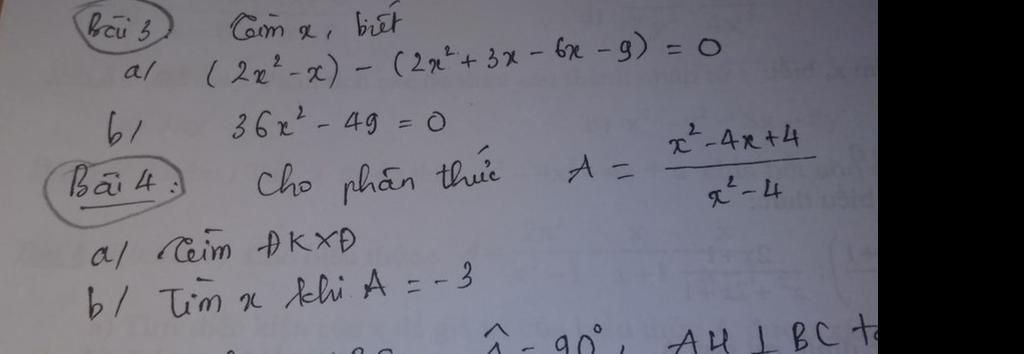 Bài 3 Tìm x, biết
a/ (2x² - x) - (2x² + 3x - 6x - 9) = 0
b/ 36x² - 49 = 0
Bài 4: Cho phân thức A = (x² - 4x + 4)/(x² - 4)
a/ Tìm ĐKXĐ
b/ Tìm x khi A = -3
= 90°, AH ⊥ BC